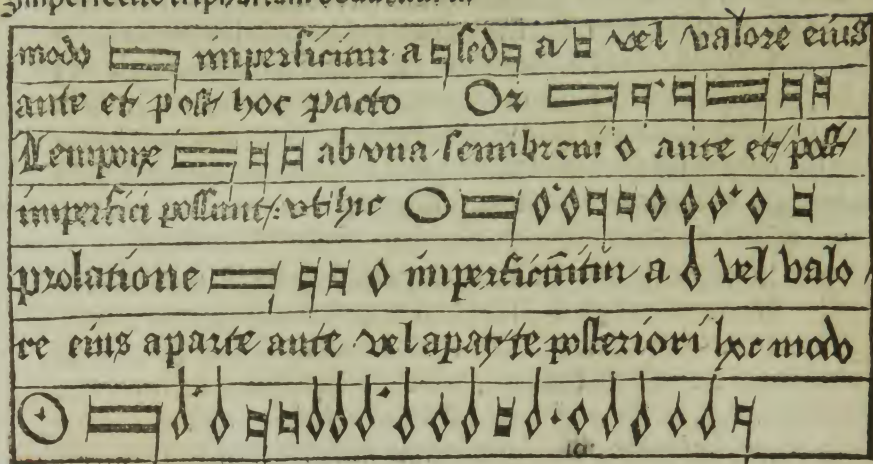 modo imperficitur a sed a vel valore eius
ante et post hoc pacto O2
Tempore ab una semibreui ante et post
imperfici possunt: vt hic
prolatione imperficiuntur a vel valo
re eius aparte ante vel apar,te posteriori hoc modo